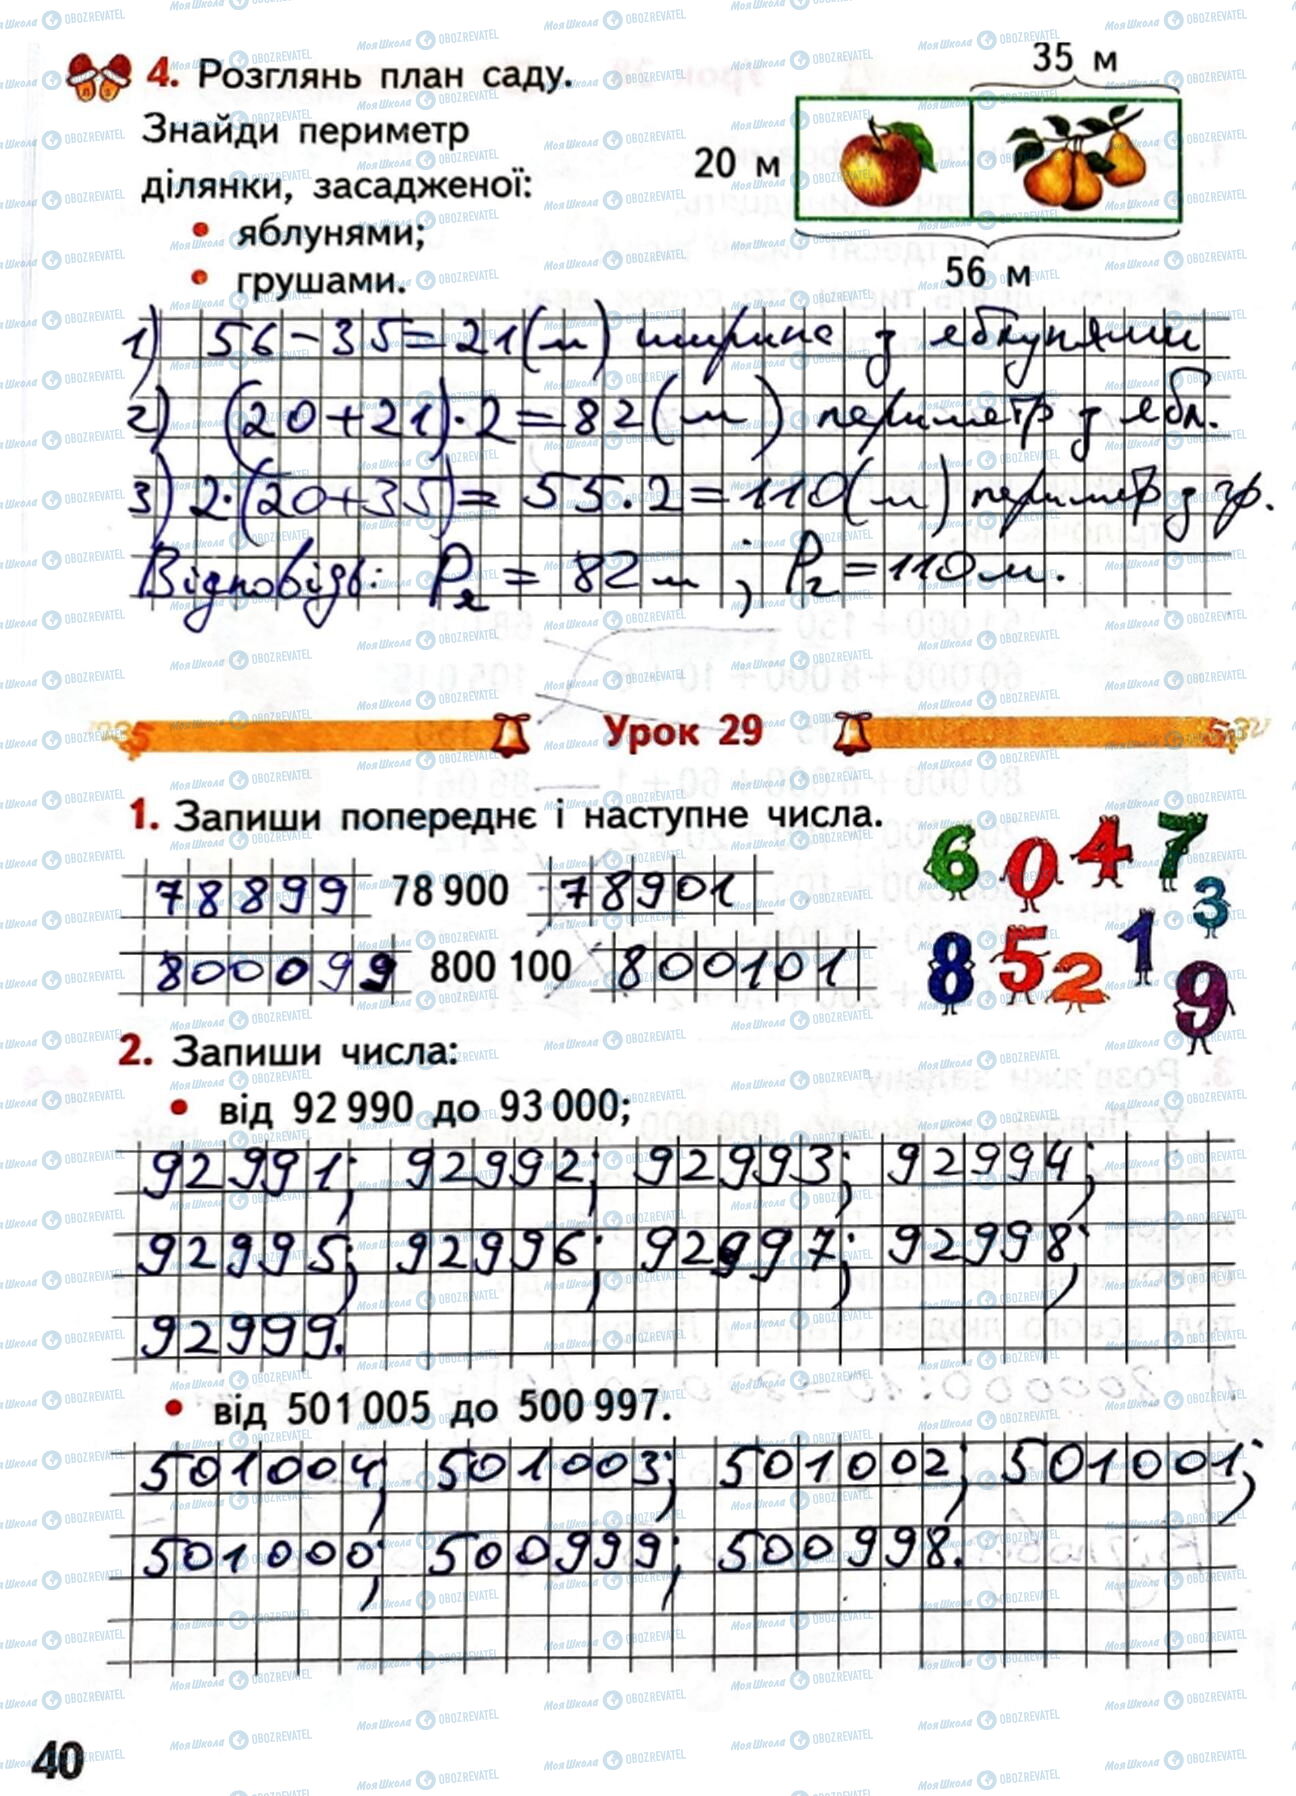 4. Розглянь план саду.
Знайди периметр
ділянки, засадженої:
• яблунями;
• грушами.
35 м
20 м
56 м
1) 56-35=21(м) ширина з яблунями
2) (20+21)·2=82(м) периметр з ябл.
3) 2·(20+35)=55·2=110(м) периметр з гр.
Відповідь: P = 82м; P = 110м.
Урок 29
1. Запиши попереднє і наступне числа.
78899 78 900 78901
800099 800 100 800101
6 0 4 7 3
8 5 2 1 9
2. Запиши числа:
• від 92 990 до 93 000;
92991; 92992; 92993; 92994;
92995; 92996; 92997; 92998;
92999.
• від 501 005 до 500 997.
501004; 501003; 501002; 501001;
501000; 500999; 500998.
40
МояШкола OBOZREVATEL